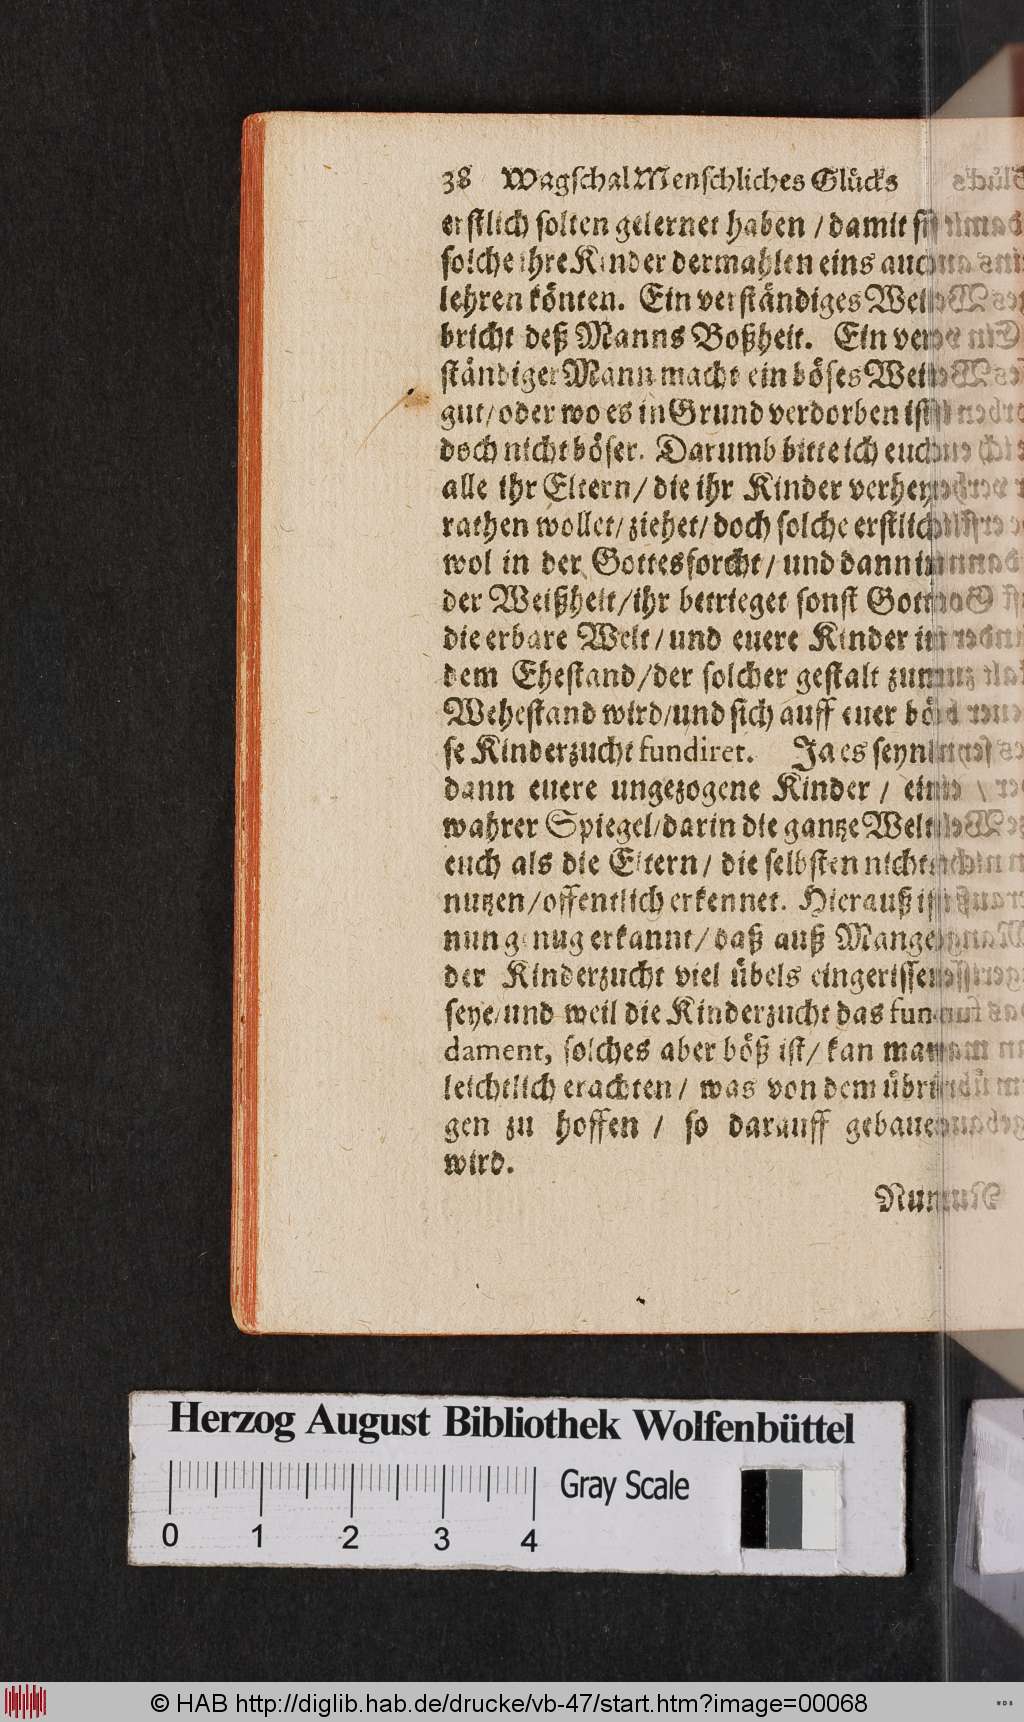 38 Wagschal Menschliches Glücks
erstlich solten gelernet haben / damit sie
solche ihre Kinder dermahlen eins auch
lehren könten. Ein verständiges Weib
bricht deß Manns Boßheit. Ein ver-
ständiger Mann macht ein böses Weib
gut / oder wo es in Grund verdorben ist
doch nicht böser. Darumb bitte ich euch
alle ihr Eltern / die ihr Kinder verhey-
rathen wollet / ziehet / doch solche erstlich
wol in der Gottesforcht / und dann in
der Weißheit / ihr betrieget sonst Gott
die erbare Welt / und euere Kinder in
dem Ehestand / der solcher gestalt zum
Wehestand wird / und sich auff euer bö-
se Kinderzucht fundiret. Ja es seynd
dann euere ungezogene Kinder / ein
wahrer Spiegel / darin die gantze Welt
euch als die Eltern / die selbsten nichts
nutzen / offentlich erkennet. Hierauß ist
nun genug erkannt / daß auß Mangel
der Kinderzucht viel übels eingerissen
seye / und weil die Kinderzucht das fun-
dament, solches aber böß ist / kan man
leichtlich erachten / was von dem übri-
gen zu hoffen / so darauff gebauet
wird.
Num
Herzog August Bibliothek Wolfenbüttel
Gray Scale
0 1 2 3 4
© HAB http://diglib.hab.de/drucke/vb-47/start.htm?image=00068